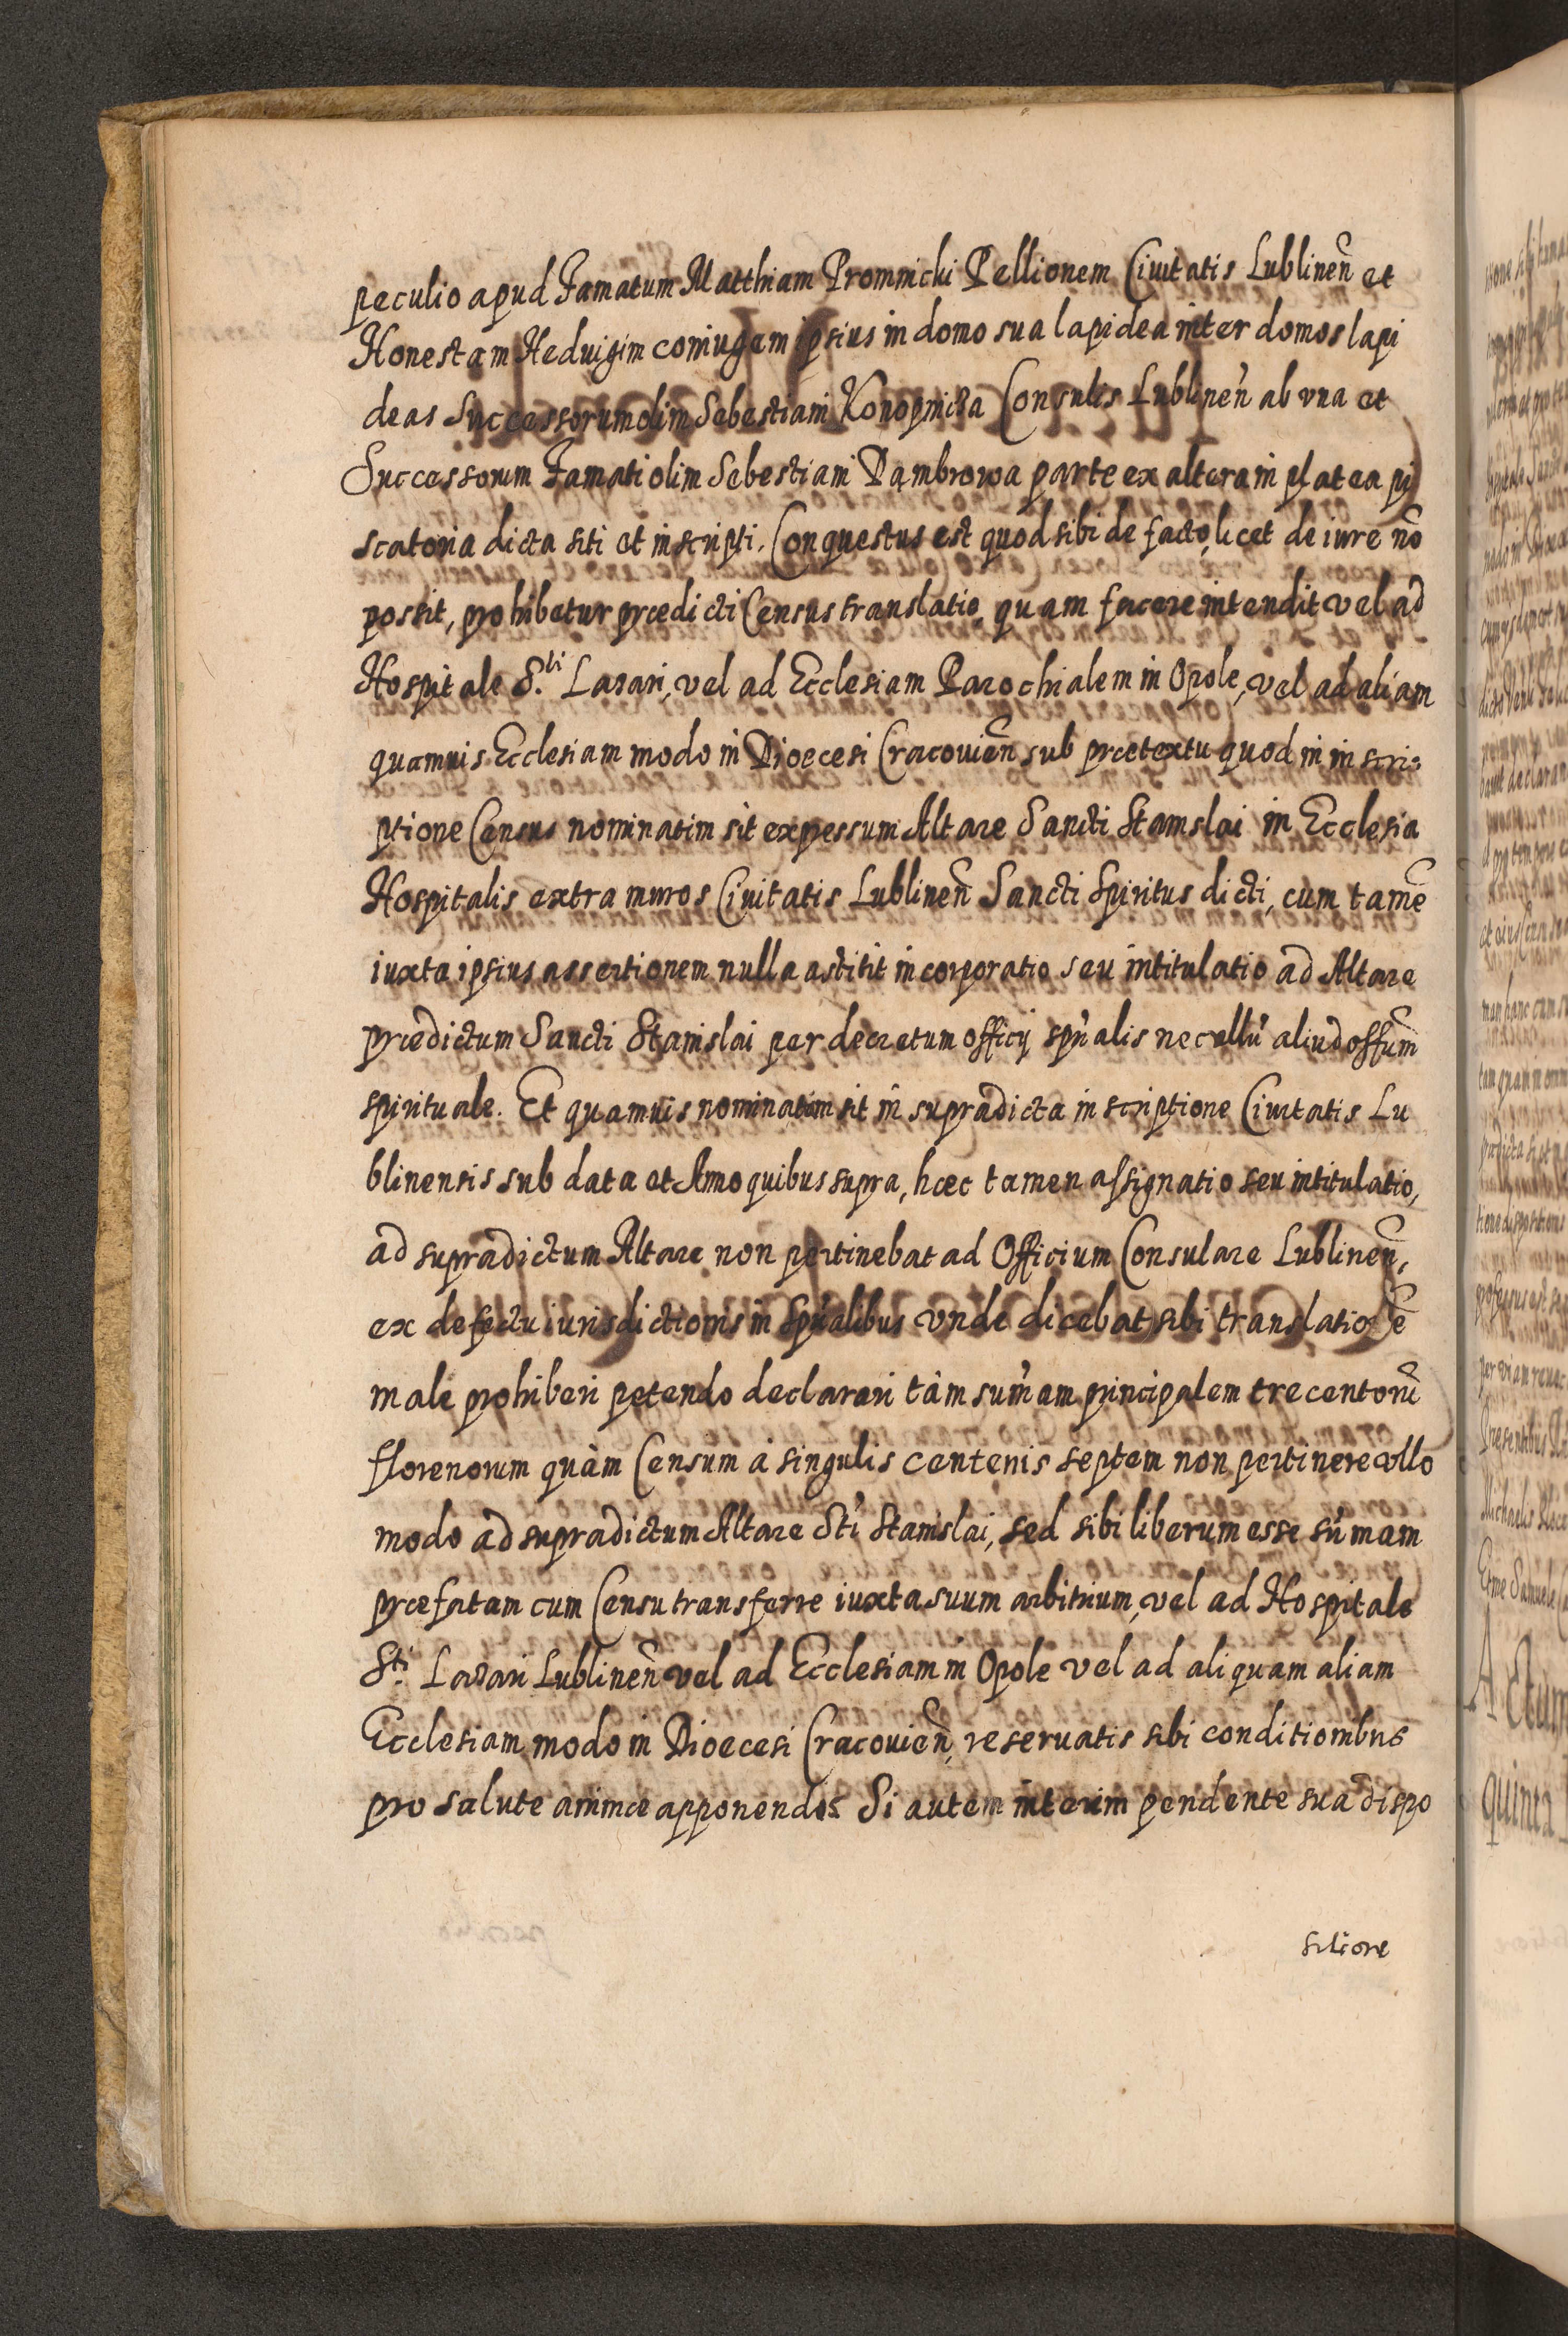 peculio apud Famatum Matthiam Promnicki Pellionem Ciuitatis Lublineñ et
Honestam Heduigim coniugem ipsius in domo sua lapidea inter domos lapi
deas Successorum olim Sebestiani Konopnicza Consulis Lublineñ ab vna et
Successorum Famati olim Sebestiani Dąmbrowa parte ex altera in platea pi
scatoria dicta siti et inscripti. Conquestus est quod sibi de facto, licet de iure nõ
possit, prohibetur prædicti Census translatio, quam facere intendit vel ad
Hospitale S.ti Lazari, vel ad Ecclesiam Parochialem in Opole, vel ad aliam
quamuis Ecclesiam modo in Dioecesi Cracouieñ sub prætextu quod in inscri=
ptione Census nominatim sit expessum Altare Sancti Stanislai in Ecclesia
Hospitalis extra muros Ciuitatis Lublineñ Sancti Spiritus dicti, cum tamẽ
iuxta ipsius assertionem nulla astitit incorporatio seu intitulatio ad Altare
prædictum Sancti Stanislai per decretum officij spũalis nec ullũ aliud offum̃
spirituale. Et quamuis nominatim sit in supradicta inscriptione Ciuitatis Lu
blinensis sub data et Anno quibus supra, hæc tamen assignatio seu intitulatio,
ad supradictum Altare non pertinebat ad Officium Consulare Lublineñ,
ex defectu iurisdictionis in Spũalibus vnde dicebat sibi translationẽ
male prohiberi petendo declarari tàm sum̃am principalem trecentorũ
florenorum quàm Censum à singulis centenis septem non pertinere vllo
modo ad supradictum Altare Sti Stanislai, sed sibi liberum esse sũmam
præfatam cum Censu transferre iuxta suum arbitrium, vel ad Hospitale
Sti Lazari Lublineñ vel ad Ecclesiam in Opole vel ad aliquam aliam
Ecclesiam modo in Dioecesi Cracouieñ, reseruatis sibi conditionibus
pro salute animæ apponendis. Si autem interim pendente sua dispo
sitione